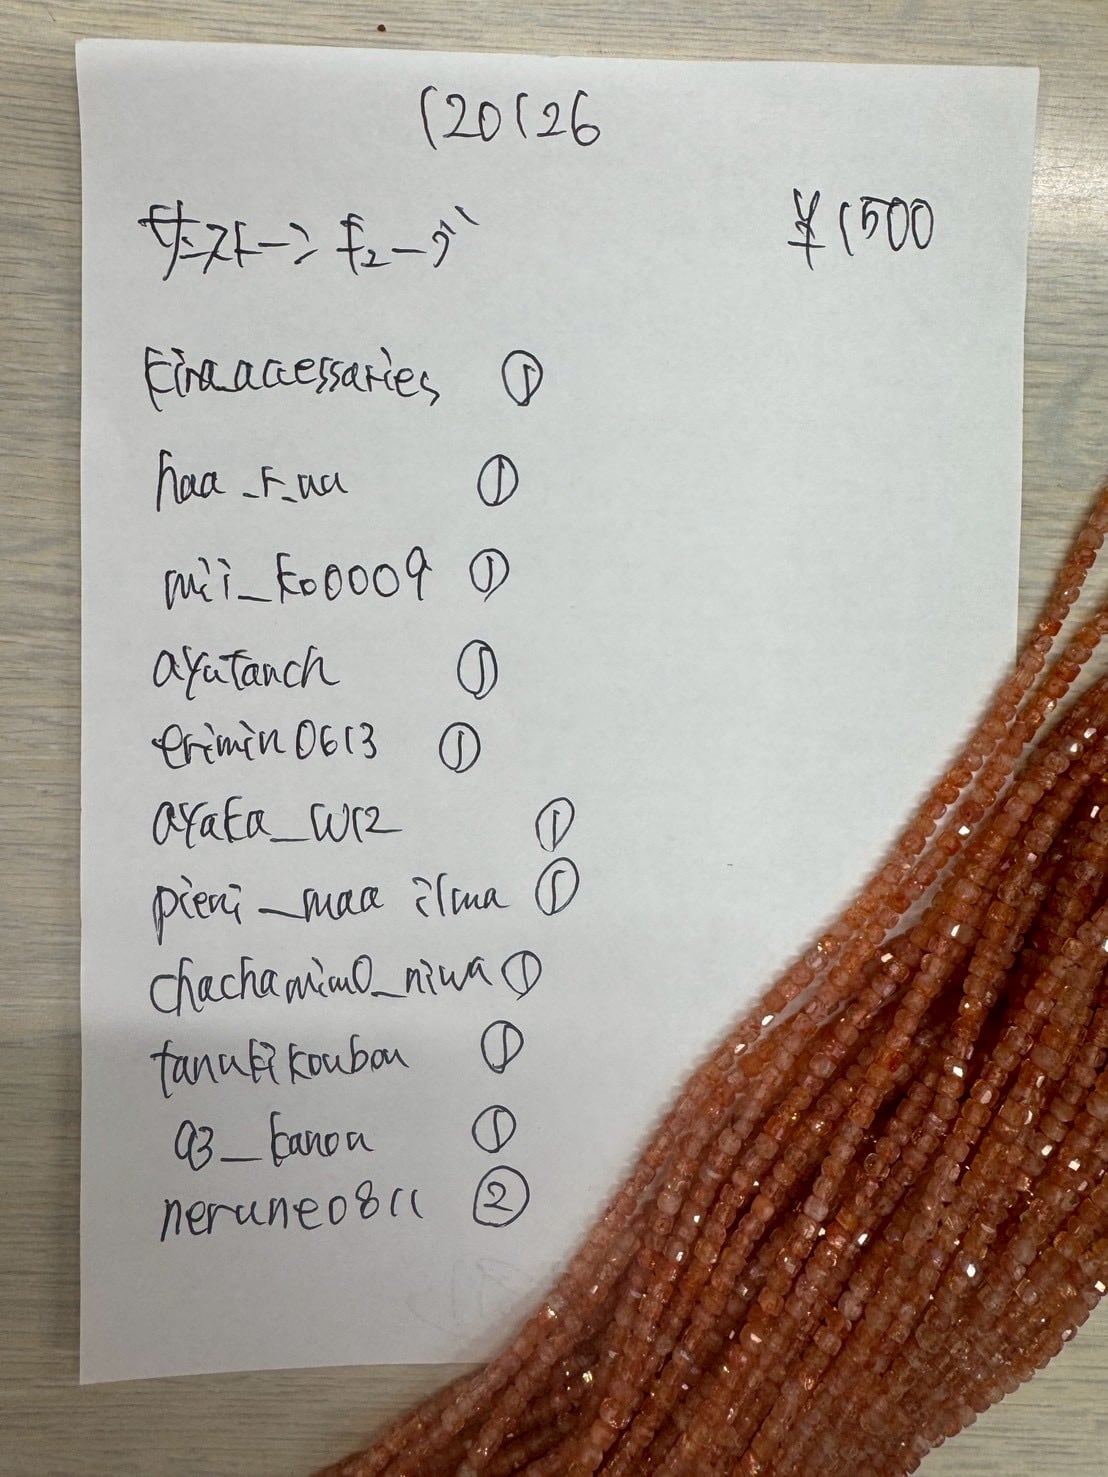 120126
サンストーンキューブ ¥1500
kira_accessaries ①
haa_r_uu ①
mii_ko0009 ①
ayatanch ①
erimin0613 ①
ayaka_w12 ①
pieni_maa ilma ①
chachamimO_niwa ①
tanukikoubou ①
93_kanon ①
nerune0811 ②